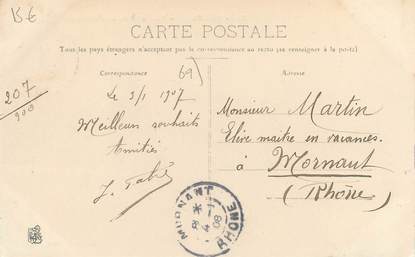 15 €
CARTE POSTALE
Tous les pays étrangers n'acceptent pas la correspondance au recto (se renseigner à la poste)
Correspondance
69)
Adresse
207
900
Le 3/1 1907
Meilleurs souhaits
Amitiés
J. Fabre
Monsieur Martin
Elève maitre en vacances
à Mornant
(Rhône)
MORNANT
RHONE